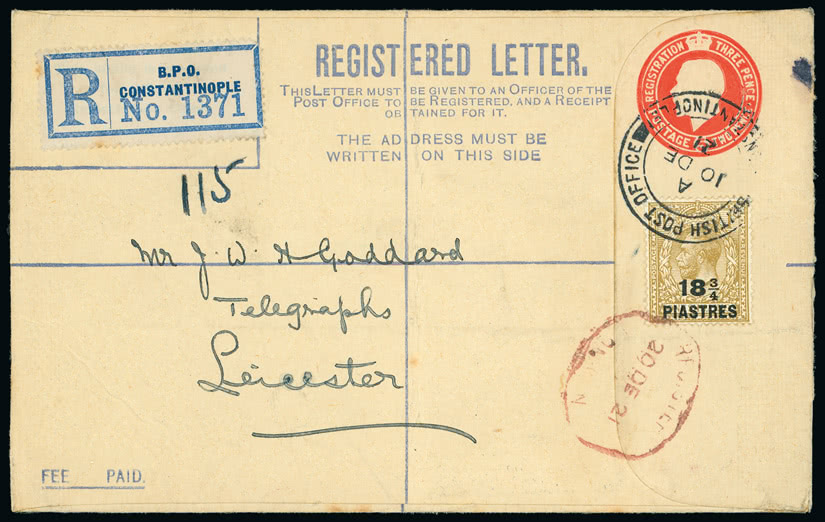 R
B.P.O.
CONSTANTINOPLE
No. 1371
REGISTERED LETTER.
THIS LETTER MUST BE GIVEN TO AN OFFICER OF THE
POST OFFICE TO BE REGISTERED, AND A RECEIPT
OBTAINED FOR IT.
THE ADDRESS MUST BE
WRITTEN ON THIS SIDE
REGISTRATION THREE PENCE
POSTAGE
BRITISH POST OFFICE
A
10 DE
21
115
Mr J. W. H Goddard
Telegraphs
Leicester
18 3/4
PIASTRES
20 DE 21
FEE PAID.